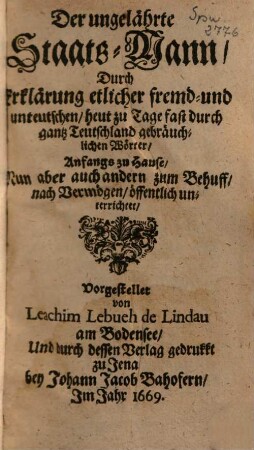 Der ungelährte
Spw
2776
Staats-Mann/
Durch
Erklärung etlicher fremd-und
unteutschen/ heut zu Tage fast durch
gantz Teutschland gebräuch-
lichen Wörter/
Anfangs zu Hause/
Nun aber auch andern zum Behuff/
nach Vermögen/ öffentlich un-
terrichtet/
Vorgestellet
von
Leachim Lebueh de Lindau
am Bodensee/
Und durch dessen Verlag gedrukkt
zu Jena
bey Johann Jacob Bahofern/
Im Jahr 1669.